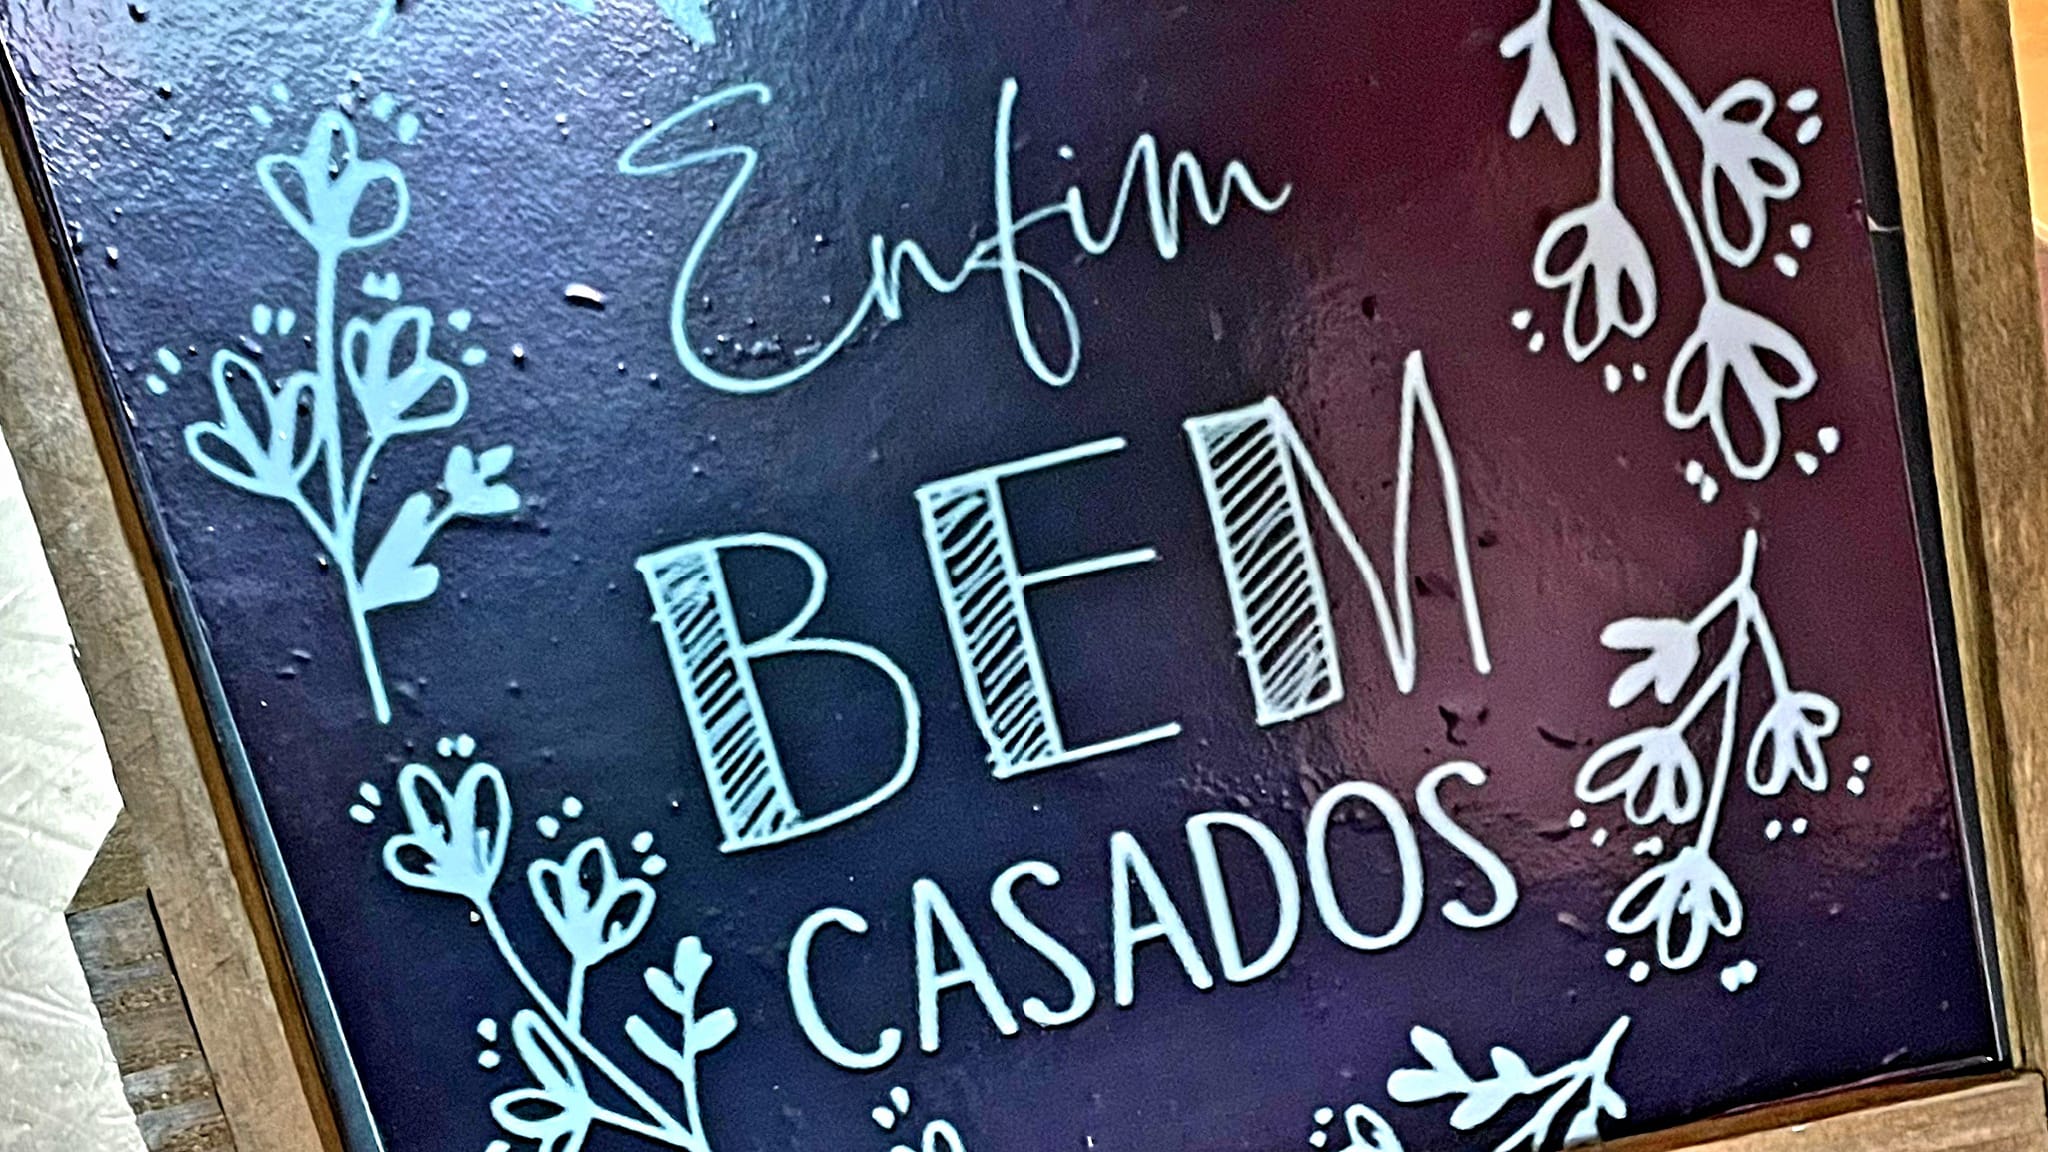 Enfim
BEM
CASADOS